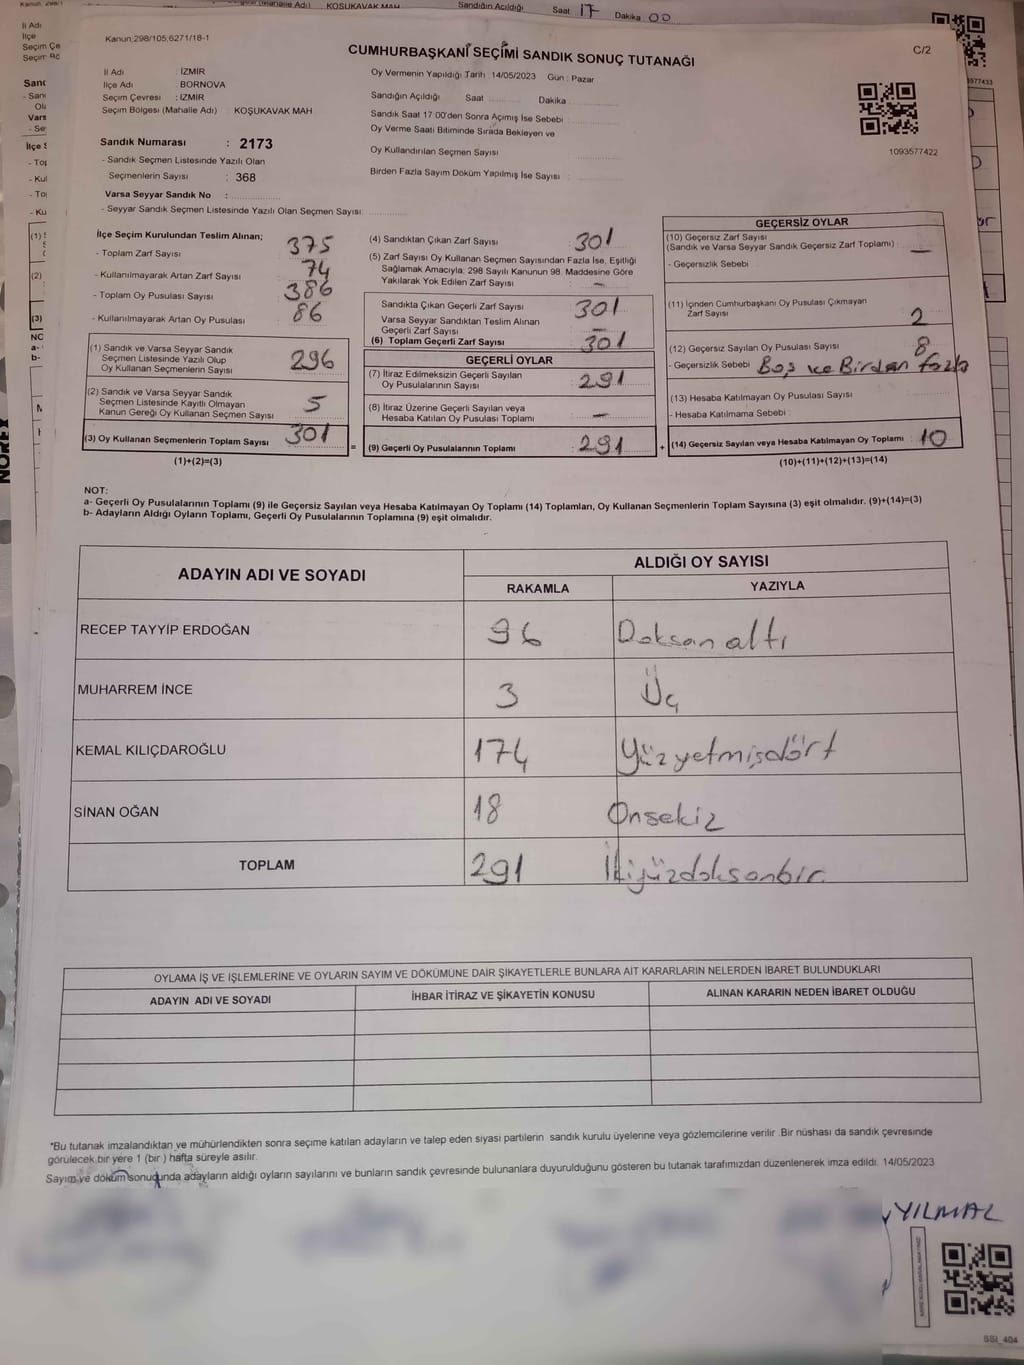 Kanun;298/105;6271/18-1
CUMHURBAŞKANI SEÇİMİ SANDIK SONUÇ TUTANAĞI
C/2
İl Adı : İZMİR
İlçe Adı : BORNOVA
Seçim Çevresi : İZMİR
Seçim Bölgesi (Mahalle Adı) : KOŞUKAVAK MAH
Sandık Numarası : 2173
- Sandık Seçmen Listesinde Yazılı Olan
Seçmenlerin Sayısı : 368
Varsa Seyyar Sandık No :
- Seyyar Sandık Seçmen Listesinde Yazılı Olan Seçmen Sayısı:
Oy Vermenin Yapıldığı Tarih : 14/05/2023 Gün : Pazar
Sandığın Açıldığı Saat Dakika
Sandık Saat 17:00'den Sonra Açımış İse Sebebi
Oy Verme Saati Bitiminde Sırada Bekleyen ve
Oy Kullandırılan Seçmen Sayısı
Birden Fazla Sayım Döküm Yapılmış İse Sayısı :
1093577422
İlçe Seçim Kurulundan Teslim Alınan;
- Toplam Zarf Sayısı 375
- Kullanılmayarak Artan Zarf Sayısı 74
- Toplam Oy Pusulası Sayısı 386
- Kullanılmayarak Artan Oy Pusulası 86
(1) Sandık ve Varsa Seyyar Sandık
Seçmen Listesinde Yazılı Olup
Oy Kullanan Seçmenlerin Sayısı 296
(2) Sandık ve Varsa Seyyar Sandık
Seçmen Listesinde Kayıtlı Olmayan
Kanun Gereği Oy Kullanan Seçmen Sayısı : 5
(3) Oy Kullanan Seçmenlerin Toplam Sayısı 301
(1)+(2)=(3)
(4) Sandıktan Çıkan Zarf Sayısı : 301
(5) Zarf Sayısı Oy Kullanan Seçmen Sayısından Fazla İse, Eşitliği
Sağlamak Amacıyla; 298 Sayılı Kanunun 98. Maddesine Göre
Yakılarak Yok Edilen Zarf Sayısı : —
Sandıkta Çıkan Geçerli Zarf Sayısı : 301
Varsa Seyyar Sandıktan Teslim Alınan
Geçerli Zarf Sayısı : —
(6) Toplam Geçerli Zarf Sayısı : 301
GEÇERLİ OYLAR
(7) İtiraz Edilmeksizin Geçerli Sayılan
Oy Pusulalarının Sayısı : 291
(8) İtiraz Üzerine Geçerli Sayılan veya
Hesaba Katılan Oy Pusulası Toplamı : —
= (9) Geçerli Oy Pusulalarının Toplamı : 291
GEÇERSİZ OYLAR
(10) Geçersiz Zarf Sayısı
(Sandık ve Varsa Seyyar Sandık Geçersiz Zarf Toplamı) : —
- Geçersizlik Sebebi
(11) İçinden Cumhurbaşkanı Oy Pusulası Çıkmayan
Zarf Sayısı 2
(12) Geçersiz Sayılan Oy Pusulası Sayısı 8
- Geçersizlik Sebebi Boş ve Birden fazla
(13) Hesaba Katılmayan Oy Pusulası Sayısı
- Hesaba Katılmama Sebebi :
+ (14) Geçersiz Sayılan veya Hesaba Katılmayan Oy Toplamı : 10
(10)+(11)+(12)+(13)=(14)
NOT:
a- Geçerli Oy Pusulalarının Toplamı (9) ile Geçersiz Sayılan veya Hesaba Katılmayan Oy Toplamı (14) Toplamları, Oy Kullanan Seçmenlerin Toplam Sayısına (3) eşit olmalıdır. (9)+(14)=(3)
b- Adayların Aldığı Oyların Toplamı, Geçerli Oy Pusulalarının Toplamına (9) eşit olmalıdır.
ADAYIN ADI VE SOYADI
ALDIĞI OY SAYISI
RAKAMLA YAZIYLA
RECEP TAYYİP ERDOĞAN 96 Doksan altı
MUHARREM İNCE 3 Üç
KEMAL KILIÇDAROĞLU 174 Yüzyetmişdört
SİNAN OĞAN 18 Onsekiz
TOPLAM 291 İkiyüzdoksanbir
OYLAMA İŞ VE İŞLEMLERİNE VE OYLARIN SAYIM VE DÖKÜMÜNE DAİR ŞİKAYETLERLE BUNLARA AİT KARARLARIN NELERDEN İBARET BULUNDUKLARI
ADAYIN ADI VE SOYADI İHBAR İTİRAZ VE ŞİKAYETİN KONUSU ALINAN KARARIN NEDEN İBARET OLDUĞU
*Bu tutanak imzalandıktan ve mühürlendikten sonra seçime katılan adayların ve talep eden siyasi partilerin sandık kurulu üyelerine veya gözlemcilerine verilir .Bir nüshası da sandık çevresinde
görülecek bir yere 1 (bir ) hafta süreyle asılır.
Sayım ve döküm sonucunda adayların aldığı oyların sayılarını ve bunların sandık çevresinde bulunanlara duyurulduğunu gösteren bu tutanak tarafımızdan düzenlenerek imza edildi. 14/05/2023
YILMAZ
SSI_404